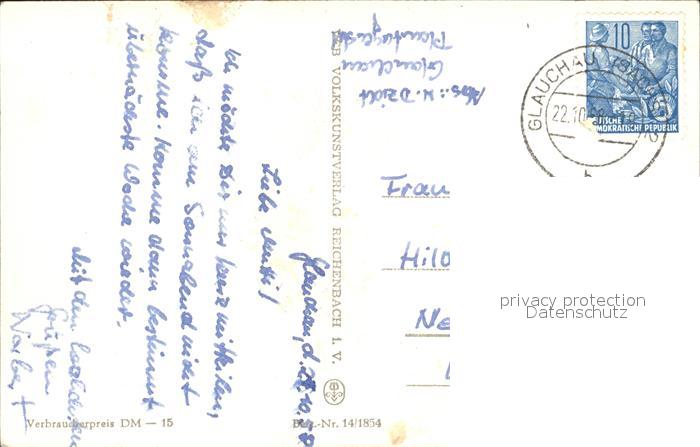 Glauchau, d. 22.10.
Liebe Mutti!
Ich möchte Dir nur kurz mitteilen,
daß ich am Sonnabend nicht
komme. Komme dann bestimmt
übernächste Woche wieder.
Mit den herzlichsten
Grüßen
Abs.: W.
Glauchau
VOLKSKUNSTVERLAG REICHENBACH I. V.
Verbraucherpreis DM — 15
Best.-Nr. 14/1854
10
DEUTSCHE
DEMOKRATISCHE REPUBLIK
GLAUCHAU (SACHS)
22.10.
b
Frau
Hild
Ne
privacy protection
Datenschutz